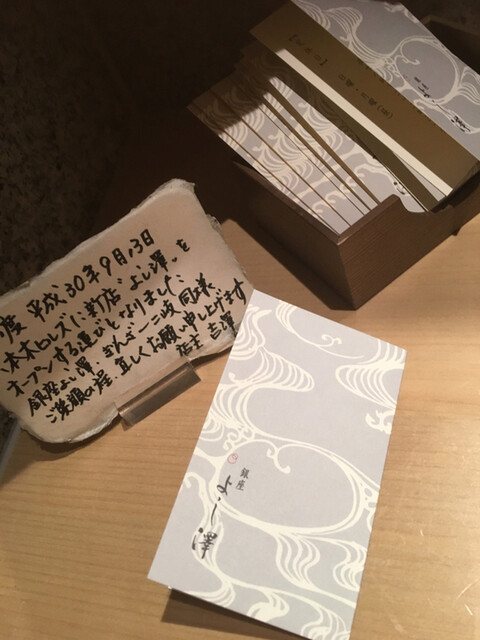 度 平成30年9月13日
本木ヒルズに新店"よし澤"を
オープンする運びとなりました
銀座よし澤 まんざ一二岐 同様
ご愛顧の程 宜しくお願い申し上げます
店主 吉澤
銀座
よし澤